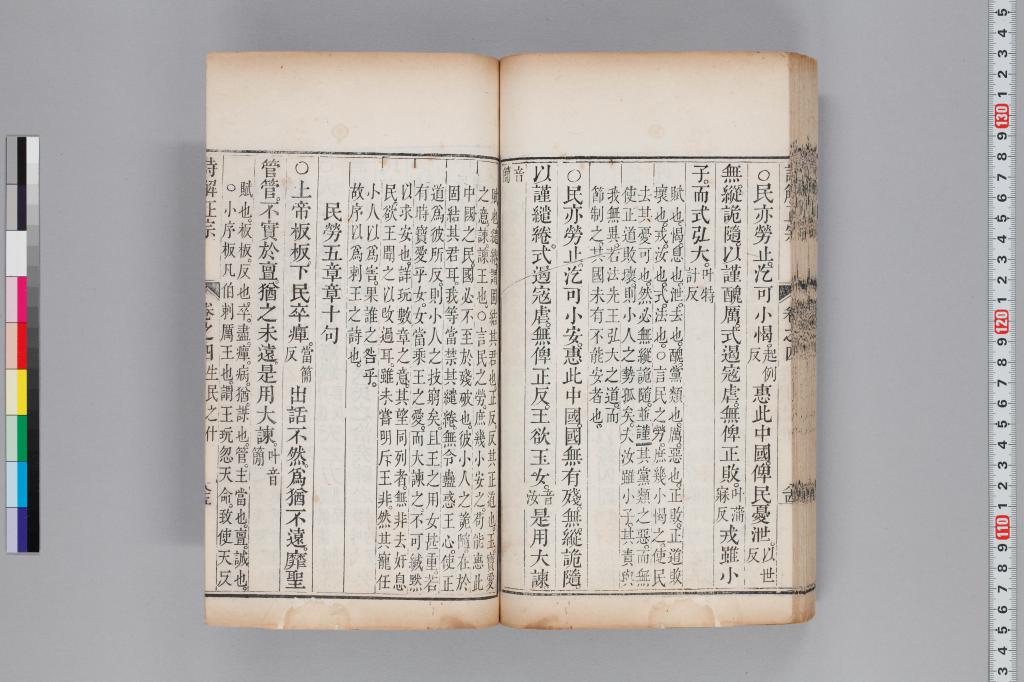 ○民亦勞止汔可小愒起例反惠此中國俾民憂泄以世反
無縱詭隨以謹醜厲式遏寇虐無俾正敗叶蒲寐反戎雖小
子而式弘大叶特計反
賦也愒息也泄去也醜黨類也厲惡也正敗正道敗
壞也戎汝也式法也○言民之勞庶幾小愒之使民
去其憂可也然必無縱詭隨並謹其黨類之惡而無
使正道敗壞則小人之勢孤矣式汝雖小子其責與
我無異若法先王弘大之道而
節制之其國未有不能安者也
○民亦勞止汔可小安惠此中國國無有殘無縱詭隨
以謹繾綣式遏寇虐無俾正反王欲玉女音汝是用大諫
音簡
賦也繾綣謂固結其君也正反反其正道也玉寶愛
之意諫諫王也○言民之勞庶幾小安之苟能惠此
中國之民國必不至於殘破也彼小人之詭隨在於
固結其君耳我等當禁其繾綣無令蠱惑王心使正
道爲彼所反則小人之技窮矣且王之用女甚重若
有時寶愛乎女女當乘王之愛而大諫之不可緘默
以求安也詳玩數章之意其望同列者無非去奸息
民欲王聞之以改過耳雖未嘗明斥王非然其寵任
小人以爲害果誰之咎乎
故序以爲刺王之詩也
民勞五章章十句
○上帝板板下民卒癉當簡反出話不然爲猶不遠靡聖
管管不實於亶猶之未遠是用大諫叶音簡
賦也板板反也卒盡癉病猶謀也管主當也亶誠也
○小序板凡伯刺厲王也謂王玩忽天命致使天反
詩解正宗 卷之四 生民之什